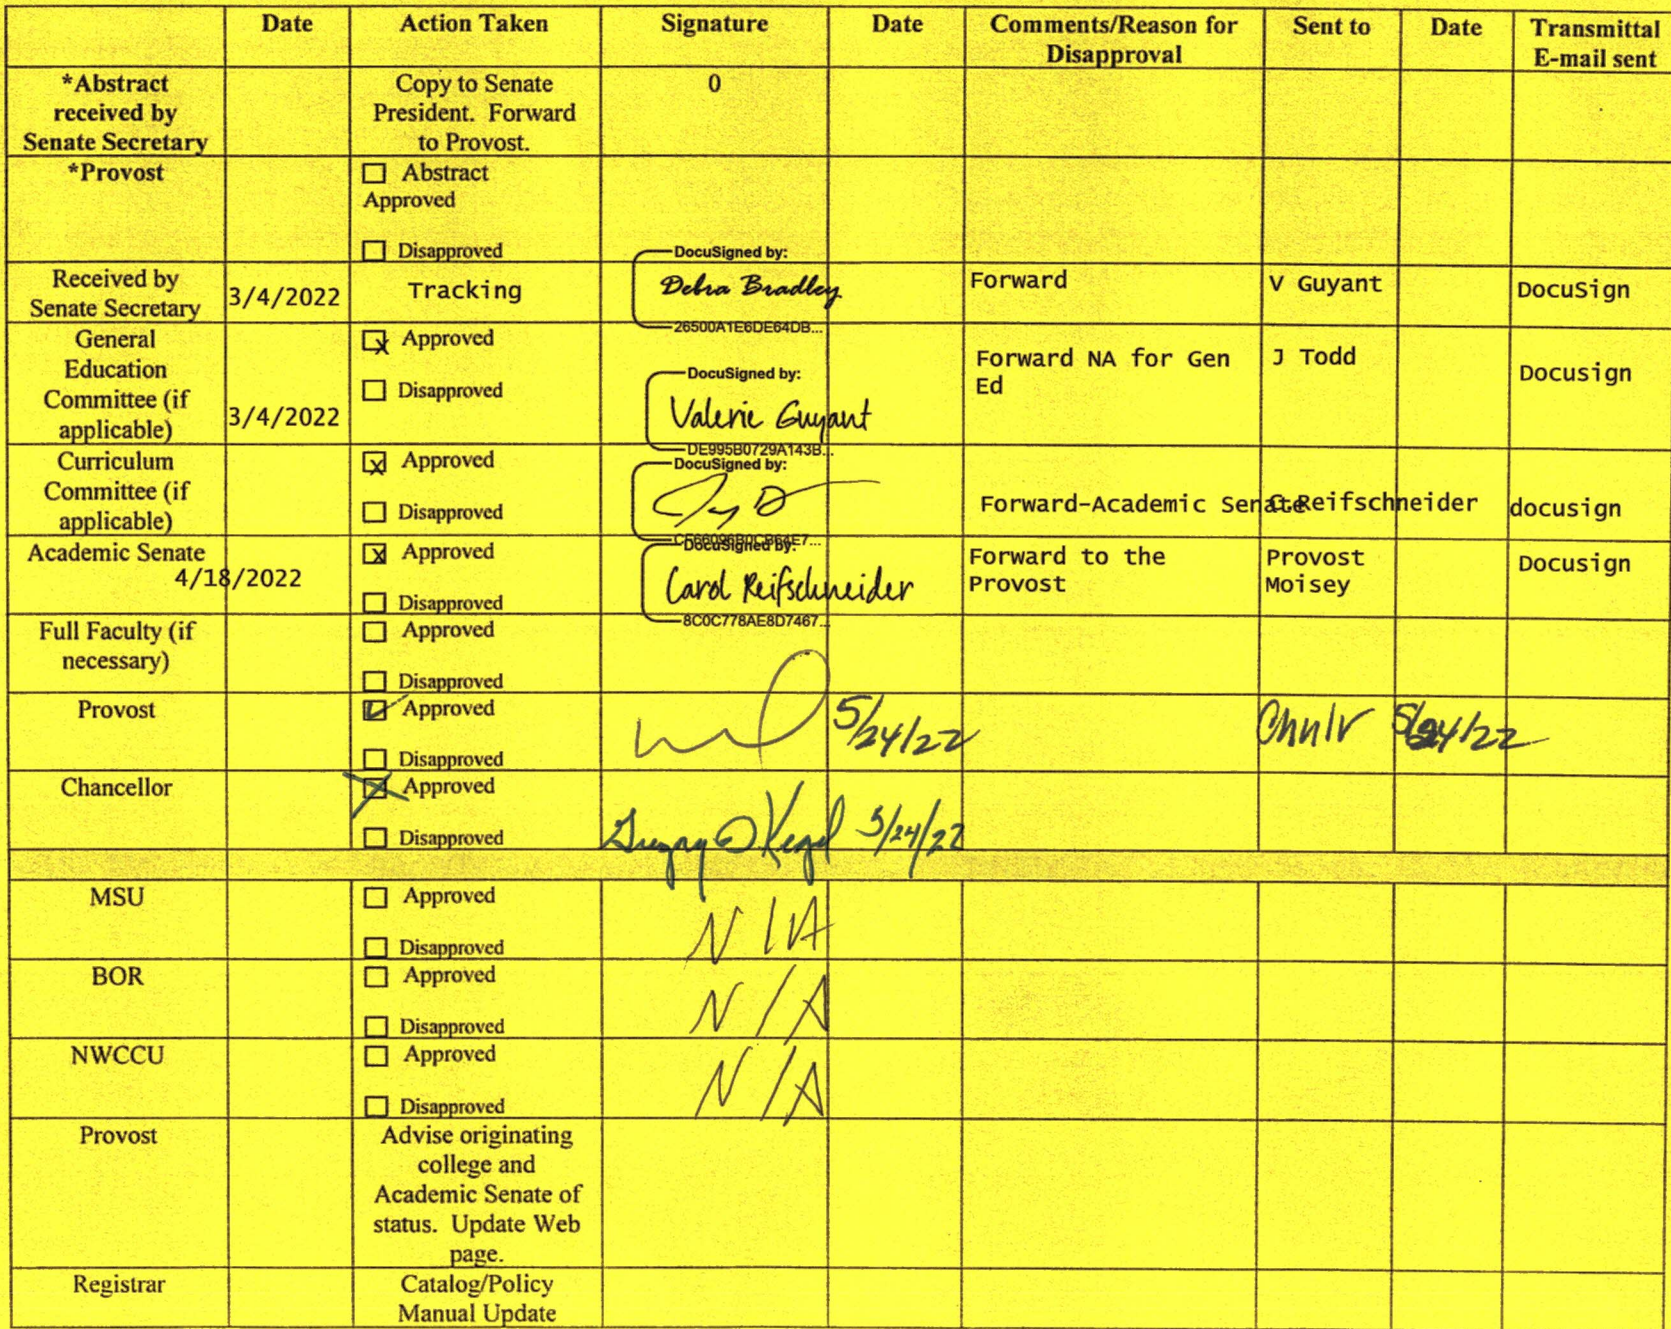 Date Action Taken Signature Date Comments/Reason for Disapproval Sent to Date Transmittal E-mail sent
*Abstract received by Senate Secretary
Copy to Senate President. Forward to Provost.
0
*Provost
☐ Abstract Approved
☐ Disapproved
Received by Senate Secretary
3/4/2022
Tracking
DocuSigned by:
Debra Bradley
26500A1E6DE64DB...
Forward
V Guyant
DocuSign
General Education Committee (if applicable)
3/4/2022
☒ Approved
☐ Disapproved
DocuSigned by:
Valerie Guyant
DE995B0729A143B...
Forward NA for Gen Ed
J Todd
Docusign
Curriculum Committee (if applicable)
☒ Approved
☐ Disapproved
DocuSigned by:
Forward-Academic Senate
C.Reifschneider
docusign
Academic Senate
4/18/2022
☒ Approved
☐ Disapproved
DocuSigned by:
Carol Reifschneider
8C0C778AE8D7467...
Forward to the Provost
Provost Moisey
Docusign
Full Faculty (if necessary)
☐ Approved
☐ Disapproved
Provost
☑ Approved
☐ Disapproved
5/24/22
5/24/22
Chancellor
☒ Approved
☐ Disapproved
5/24/22
MSU
☐ Approved
☐ Disapproved
N/A
BOR
☐ Approved
☐ Disapproved
N/A
NWCCU
☐ Approved
☐ Disapproved
N/A
Provost
Advise originating college and Academic Senate of status. Update Web page.
Registrar
Catalog/Policy Manual Update